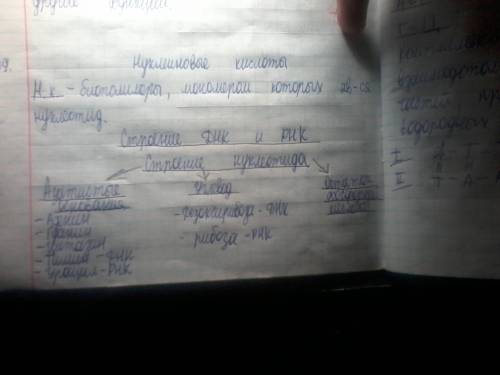 другие функции.
Нуклииновые кислоты
Н.к. - биополимеры, мономером которых яв-ся
нуклеотид.
Строение ДНК и РНК
Строение нуклеотида
Азотистые основания
- Аденин
- Гуанин
- Цитозин
- Тимин - ДНК
- Урацил - РНК
Углевод
- дезоксирибоза - ДНК
- рибоза - РНК
Остаток
фосфорной
кислоты
водородных
I
II